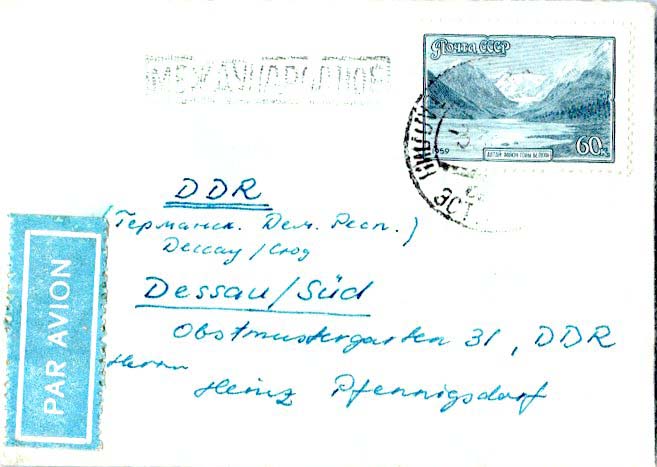 Почта СССР
МЕЖДУНАРОДНОЕ
1959
АЛТАЙ. ПОДНОЖИЕ ГОРЫ БЕЛУХИ
60 к
DDR
(Германск. Дем. Респ.)
Дессау/Сюд
Dessau/Süd
Obstmustergarten 31, DDR
Herrn
Heinz Pfennigsdorf
PAR AVION